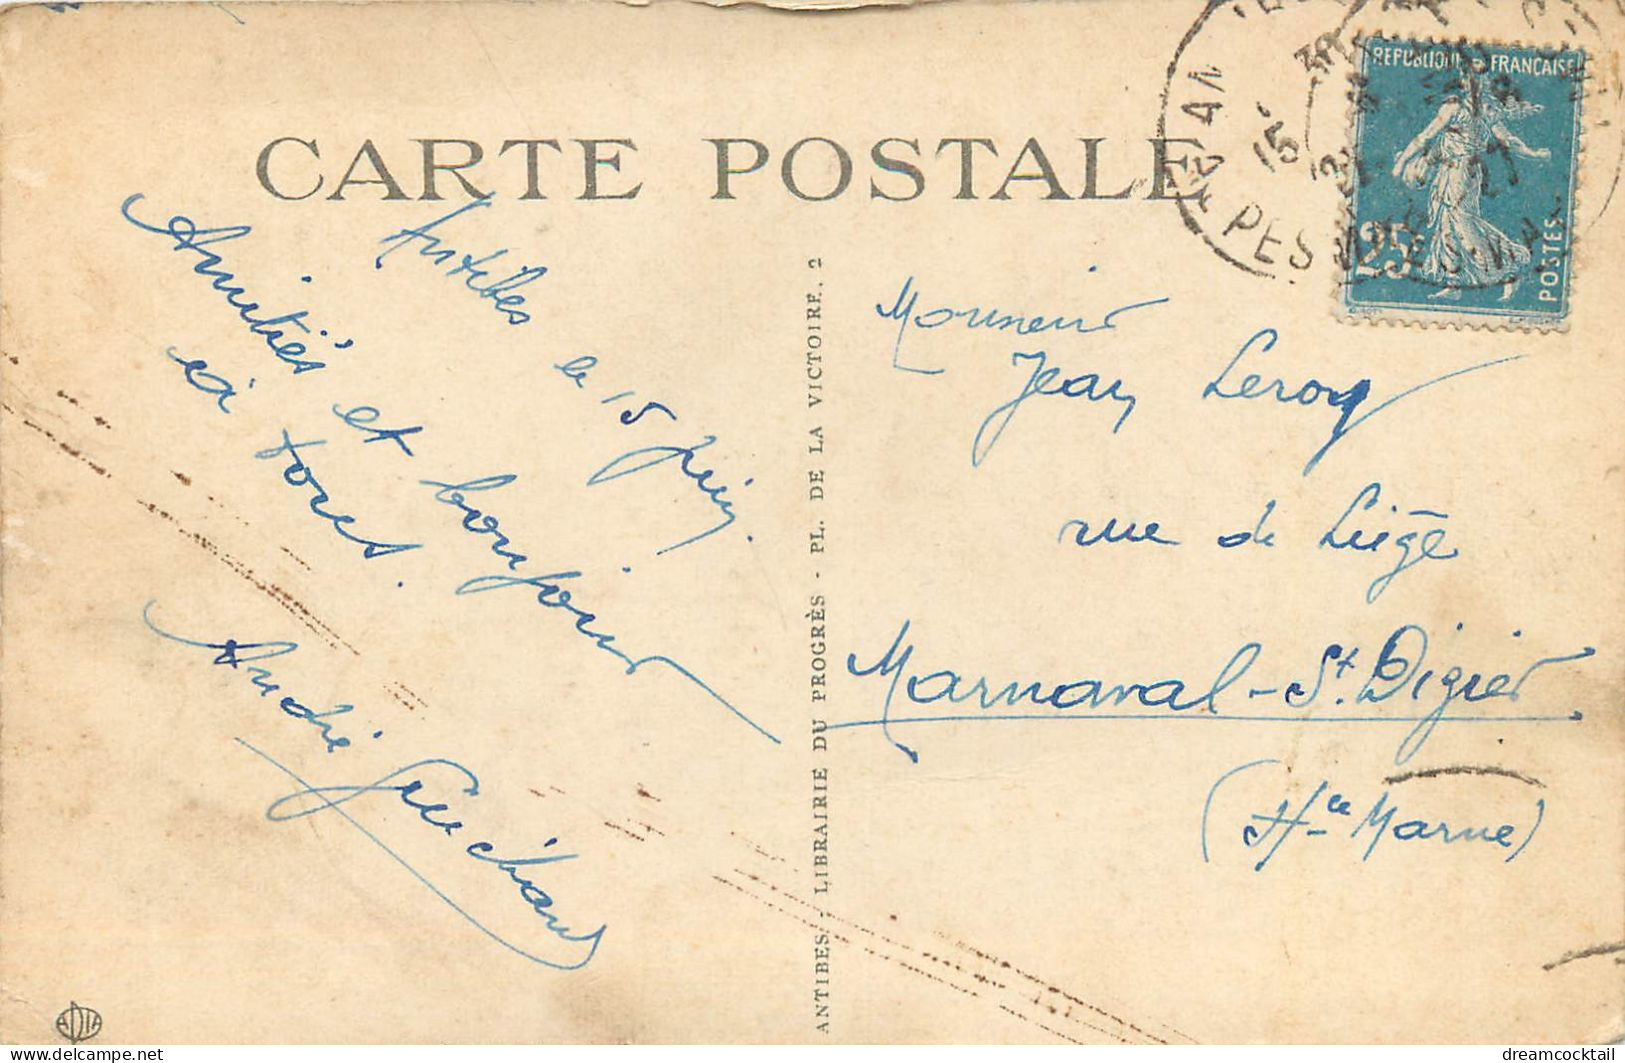 CARTE POSTALE
Antibes le 15 Juin.
Amitiés et bonjour
à tous.
André Guichard
ANTIBES. - LIBRAIRIE DU PROGRÈS - PL. DE LA VICTOIRE. 2
REPUBLIQUE FRANÇAISE
25c
POSTES
15
27
Monsieur
Jean Leroy
rue de Liège
Marnaval - St. Digier
(Hte Marne)
ADIA
dreamcocktail